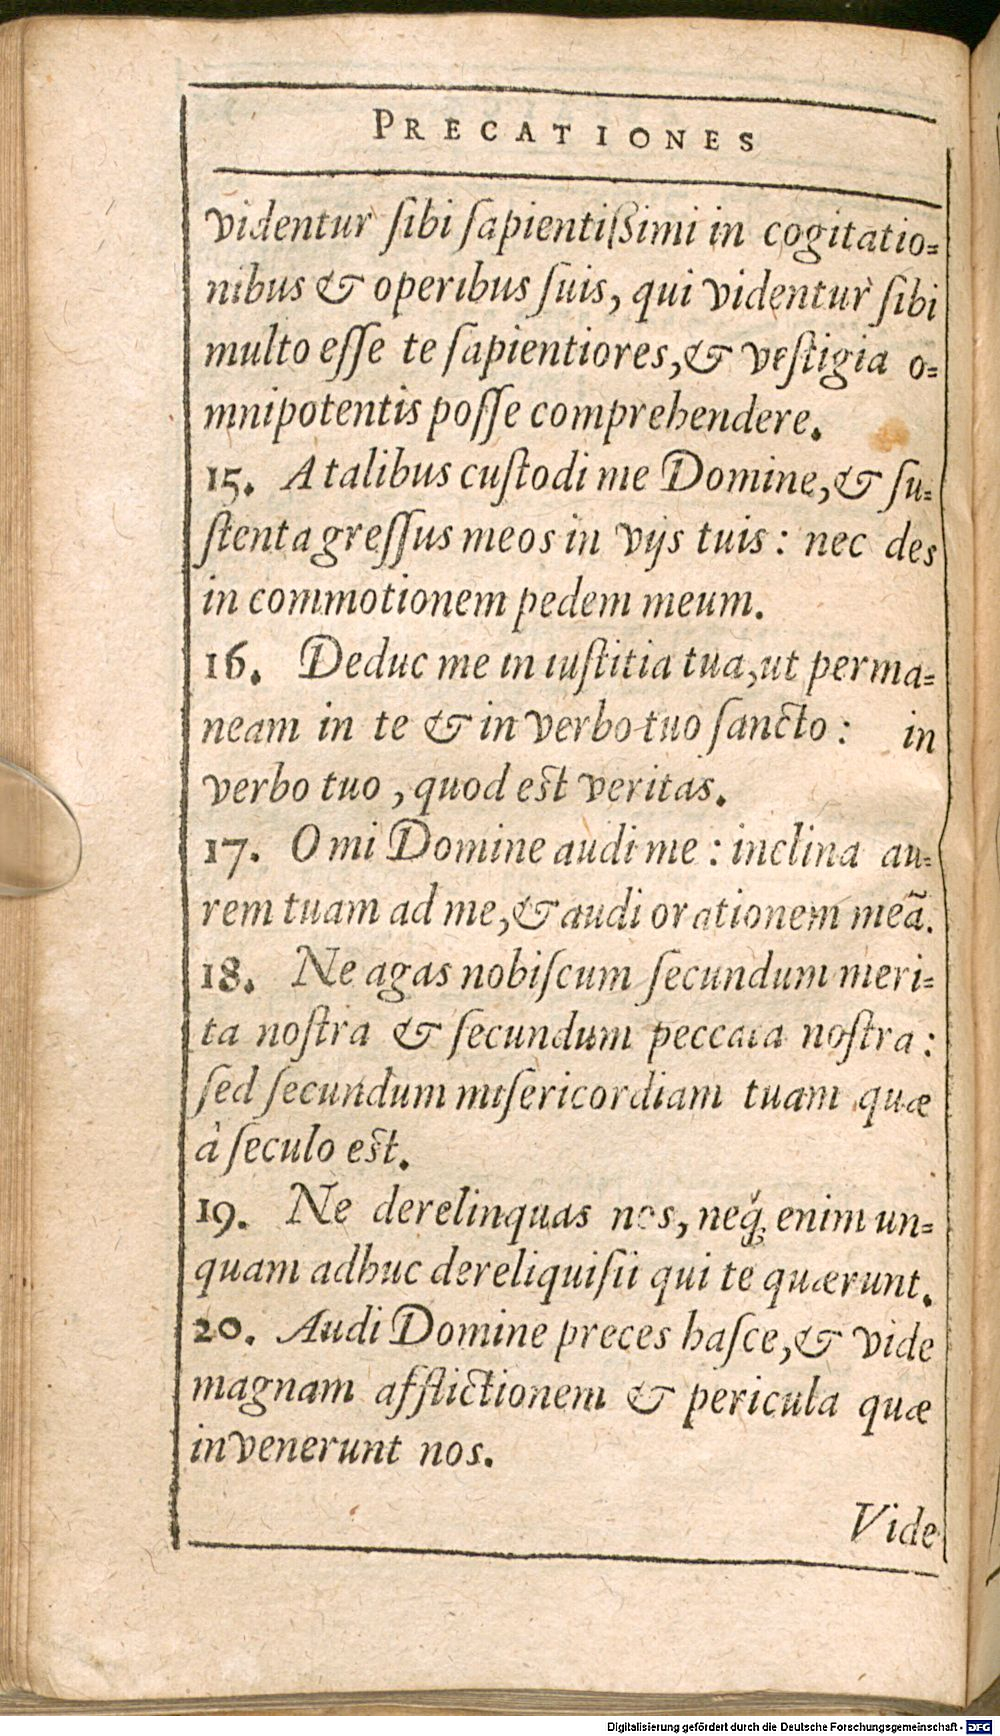 PRECATIONES
videntur ſibi ſapientiſsimi in cogitatio=
nibus & operibus ſuis, qui videntur ſibi
multo eſſe te ſapientiores, & veſtigia o=
mnipotentis poſſe comprehendere.
15. A talibus cuſtodi me Domine, & ſu=
ſtenta greſſus meos in vijs tuis : nec des
in commotionem pedem meum.
16. Deduc me in iuſtitia tua, ut perma=
neam in te & in verbo tuo ſancto : in
verbo tuo , quod eſt veritas.
17. O mi Domine audi me : inclina au=
rem tuam ad me, & audi orationem meã.
18. Ne agas nobiſcum ſecundum meri=
ta noſtra & ſecundum peccata noſtra :
ſed ſecundum miſericordiam tuam quæ
à ſeculo eſt.
19. Ne derelinquas nos, neq́; enim un=
quam adhuc dereliquiſii qui te quærunt.
20. Audi Domine preces haſce, & vide
magnam afflictionem & pericula quæ
invenerunt nos.
Vide
Digitalisierung gefördert durch die Deutsche Forschungsgemeinschaft - DFG